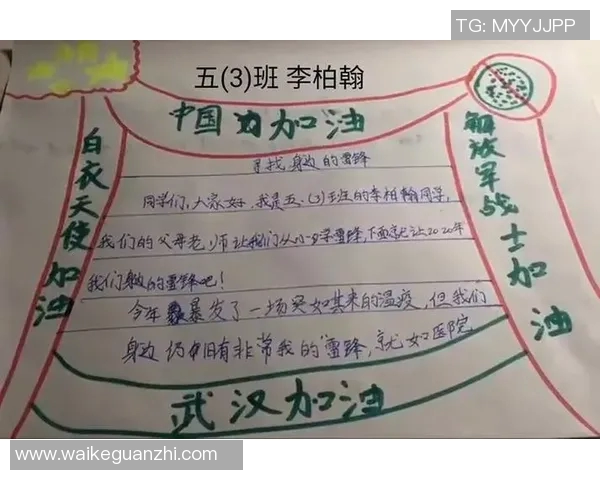 TG: MYYJJPP
五(3)班 李柏翰
中国力加油
白衣天使加油
寻找身边的雷锋
同学们,大家好,我是五.(3)班的李柏翰同学,
我们的父母老师让我们从小学雷锋,下面就让2020年
我们身边的雷锋吧!
今年暴发了一场突如其来的温疫,但我们
身边仍旧有非常我的雷锋,就如医院
解放军战士加油
武汉加油
www.waikeguanzhi.com